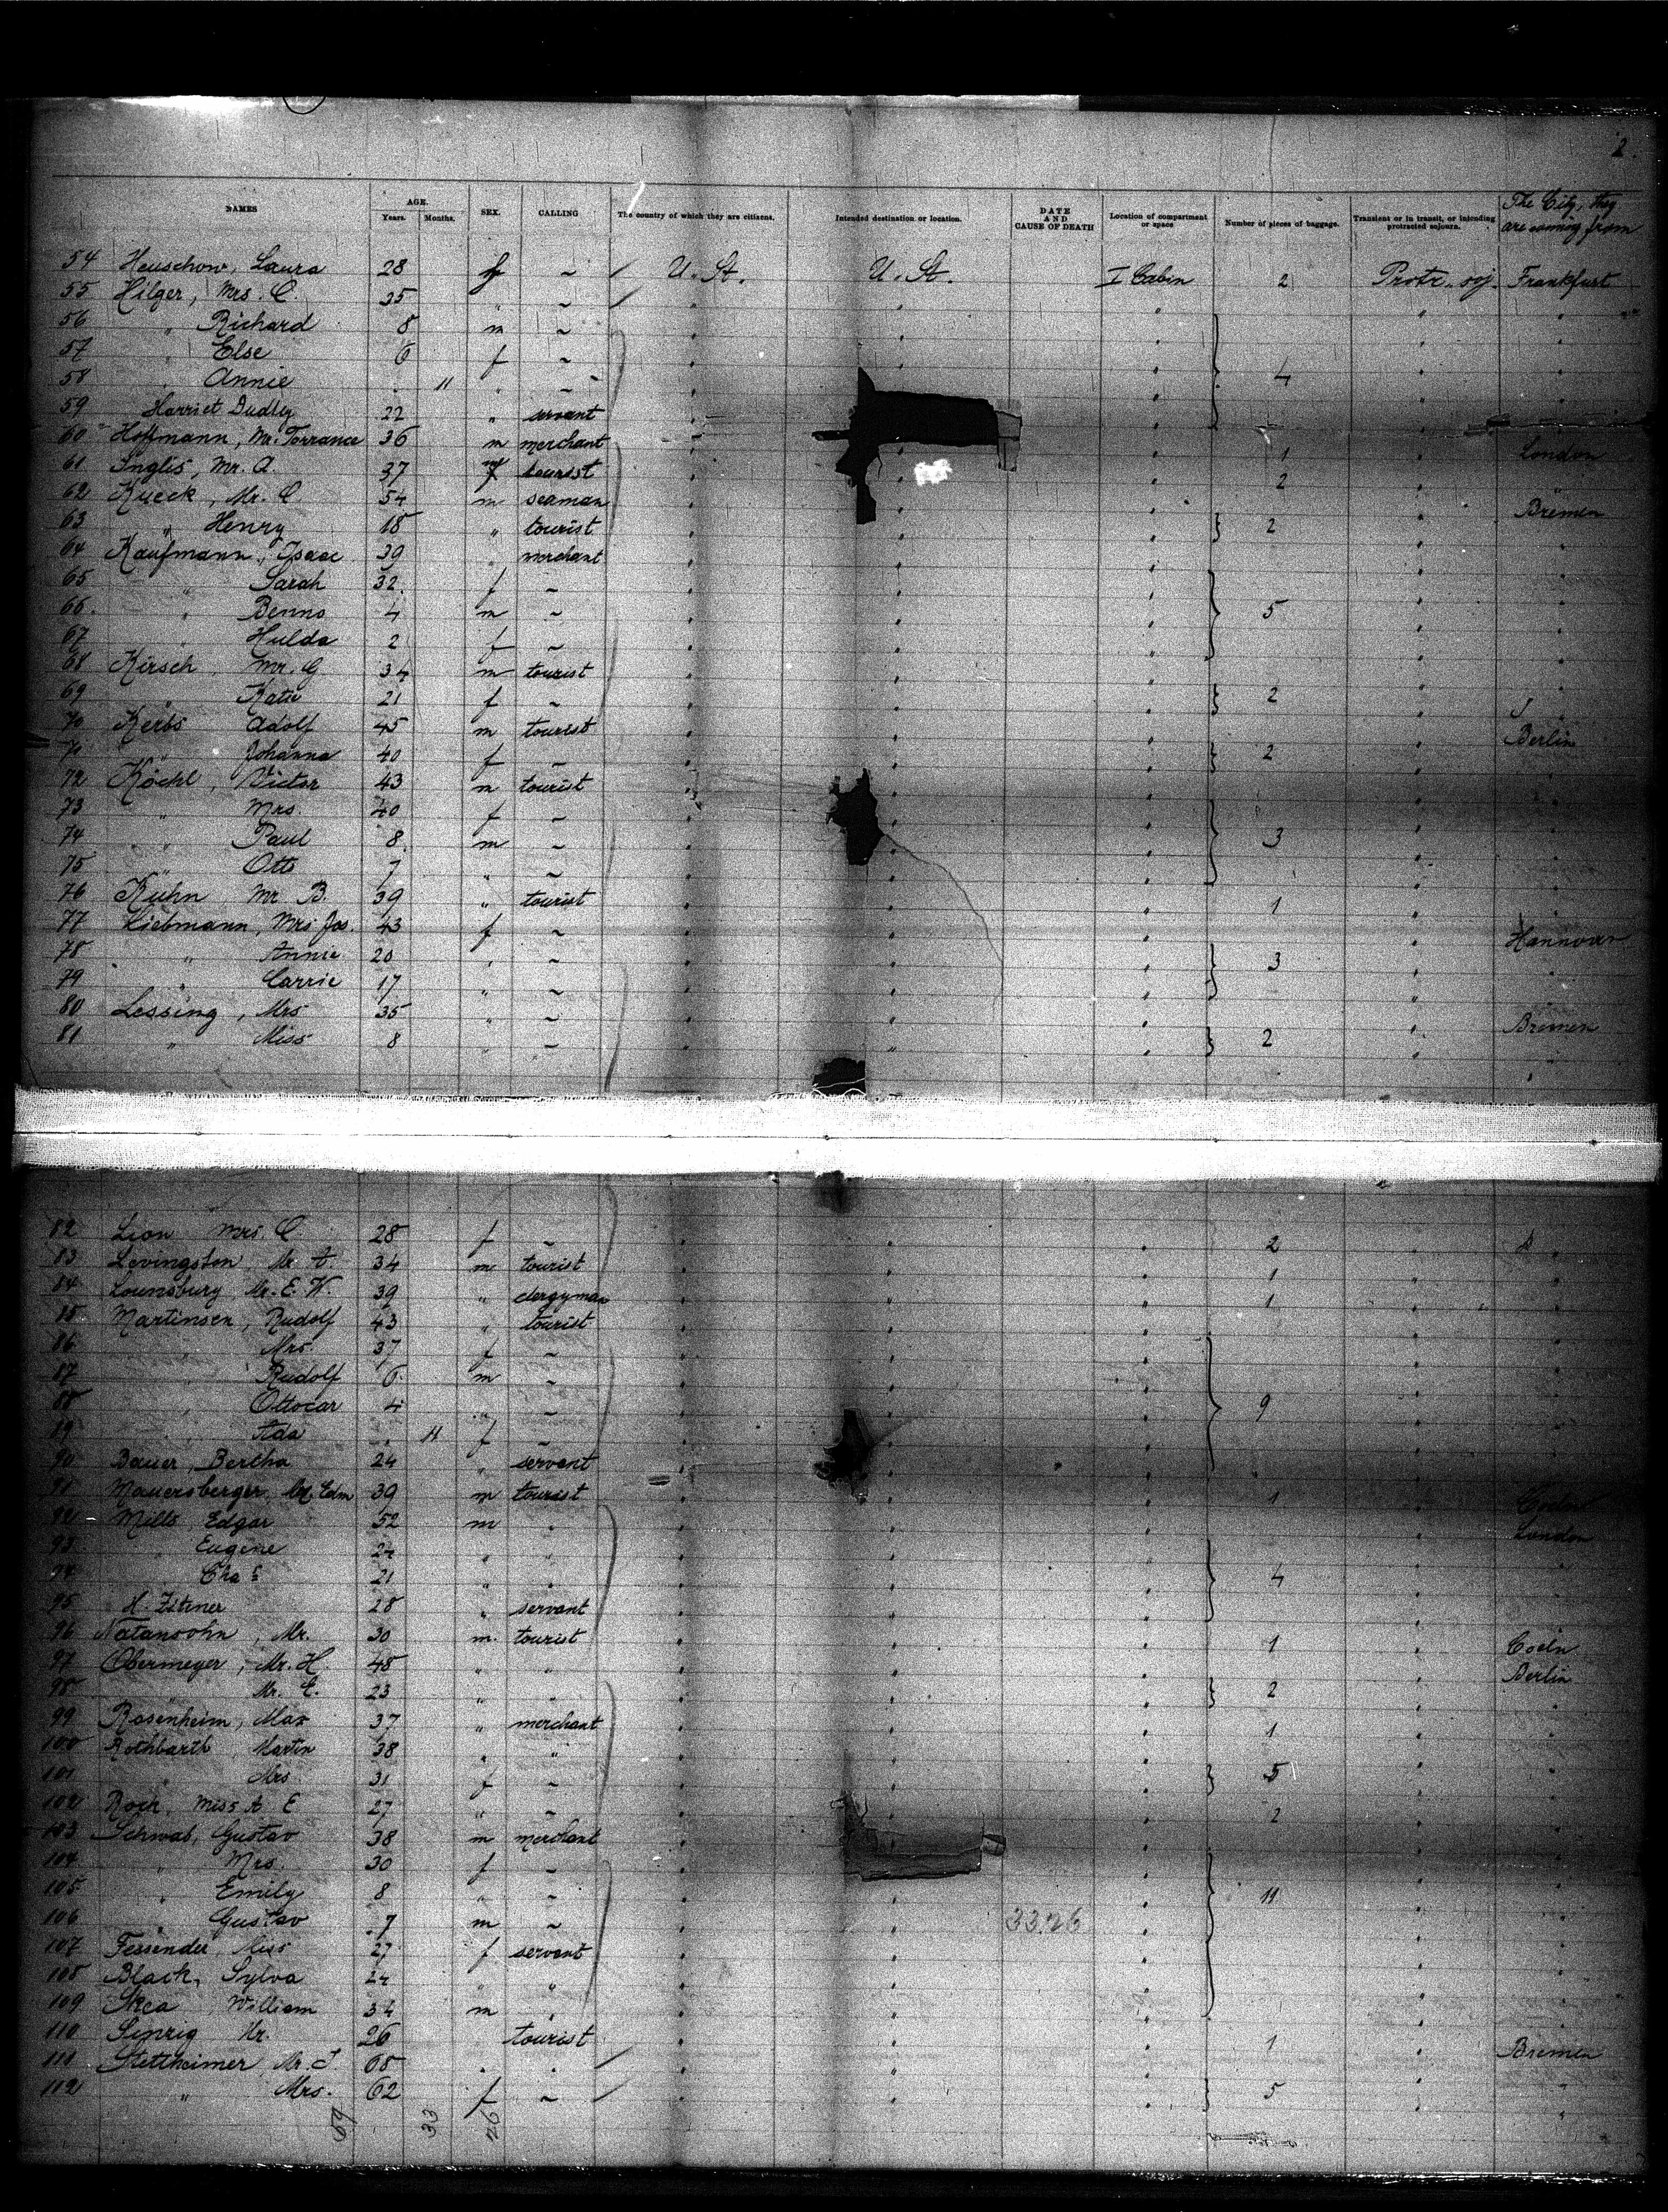 2.
NAMES AGE. Years. Months. SEX. CALLING The country of which they are citizens. Intended destination or location. DATE AND CAUSE OF DEATH Location of compartment or space Number of pieces of baggage. Transient or in transit, or intending protracted sojourn. The City, they are coming from
54 Heuschow, Laura 28 f ~ U. St. U. St. I Cabin 2 Protr. soj. Frankfurt
55 Hilger, Mrs. C. 35 " ~ " " " " "
56 " Richard 8 m ~ " " " " "
57 " Else 6 f ~ " " " " "
58 " Annie " 11 " ~ " " " 4 " "
59 Harriet Dudley 22 " servant " " " "
60 Hoffmann, Mr. Torrance 36 m merchant " " 1 " London
61 Inglis, Mr. A. 37 m tourist " " " 2 " "
62 Kueck, Mr. C 54 m seaman " " " " Bremen
63 " Henry 18 " tourist " " " 2 " "
64 Kaufmann, Isaac 39 " merchant " " " " "
65 " Sarah 32 f ~ " " " " "
66 " Benno 4 m ~ " " " 5 " "
67 " Hulda 2 f ~ " " " " "
68 Kirsch, Mr. G. 34 m tourist " " " " "
69 " Katie 21 f ~ " " " 2 " "
70 Kerbs Adolf 45 m tourist " " " " Berlin
71 " Johanna 40 f ~ " " " 2 " "
72 Köchl, Victor 43 m tourist " " " " "
73 " Mrs. 40 f ~ " " " " "
74 " Paul 8 m ~ " " " 3 " "
75 " Otto 7 " ~ " " " " "
76 Kuhn Mr B. 39 " tourist " " " 1 " "
77 Liebmann, Mrs Jos. 43 f ~ " " " " Hannover
78 " Annie 20 " ~ " " " 3 " "
79 " Carrie 17 " ~ " " " " "
80 Lessing, Mrs 35 " ~ " " " " Bremen
81 " Miss 8 " ~ " " " 2 " "
82 Lion Mrs. C. 28 f ~ " " " 2 " "
83 Levingston, Mr. A. 34 m tourist " " " 1 " "
84 Lounsbury, Mr. E. W. 39 " clergyman " " " 1 " "
85 Martinsen, Rudolf 43 " tourist " " " " "
86 " Mrs. 37 f ~ " " " " "
87 " Rudolf 6 m ~ " " " " "
88 " Ottocar 4 " ~ " " " 9 " "
89 " Ada " 11 f ~ " " " " "
90 Bauer, Bertha 24 " servant " " " " "
91 Mauersberger, Mr Edm 39 m tourist " " " 1 "
92 Mills, Edgar 52 m " " " " " London
93 " Eugene 24 " " " " " " "
94 " Chas 21 " " " " " 4 " "
95 H. 28 " servant " " " " "
96 Natansohn, Mr. 30 m. tourist " " " 1 " Coeln
97 Obermeyer, Mr. H. 48 " " " " " " Berlin
98 " Mr. E. 23 " " " " " 2 " "
99 Rosenheim, Max 37 " merchant " " " 1 " "
100 Rothbarth, Martin 38 " " " " " " "
101 " Mrs 31 f ~ " " " 5 " "
102 Roch, Miss A E 27 " ~ " " " 2 " "
103 Schwab, Gustav 38 m merchant " " " "
104 " Mrs. 30 f ~ " " " " "
105 " Emily 8 " ~ " " " 11 " "
106 " Gustav 7 m ~ " " 33.26 " " "
107 Fessender Miss 27 f servant " " " " "
108 Black, Sylva 24 " " " " " " "
109 Shea, William 34 m " " " " " "
110 Sinrig Mr. 26 tourist " " " 1 " Bremen
111 Stettheimer, Mr. J. 68 " " " " " " "
112 " Mrs. 62 f ~ " " " 5 " "
59 33 26